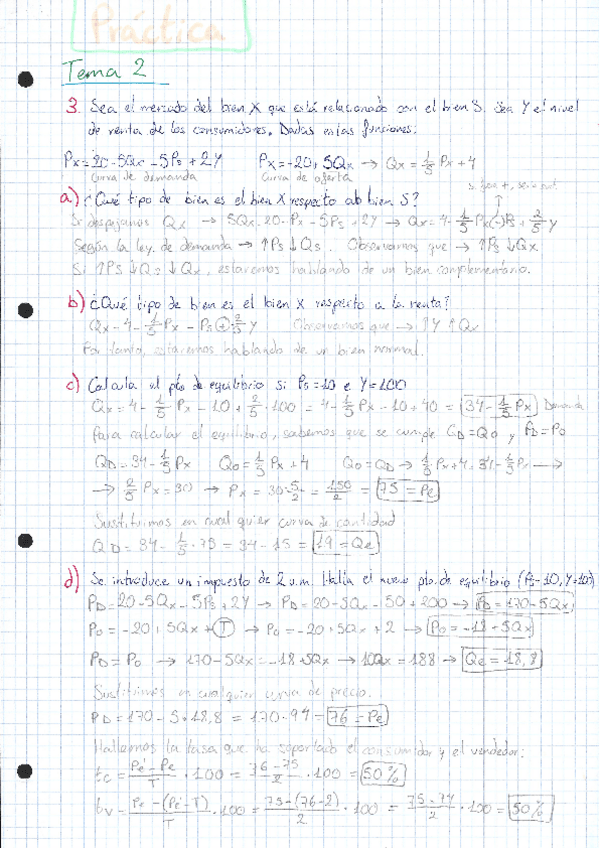 Práctica
Tema 2
3. Sea el mercado del bien X que está relacionado con el bien S. Sea Y el nivel
de renta de los consumidores. Dadas estas funciones:
Px = 20 - 5Qx - 5Ps + 2Y Px = -20 + 5Qx → Qx = 1/5 Px + 4
Curva de demanda Curva de oferta
a) ¿Qué tipo de bien es el bien X respecto al bien S?
Si despejamos Qx → 5Qx = 20 - Px - 5Ps + 2Y → Qx = 4 - 1/5 Px (-) Ps + 2/5 Y
Según la ley de demanda → ↑Ps ↓Qs. Observamos que → ↑Ps ↓Qx
Si ↑Ps ↓Qs ↓Qx, estaremos hablando de un bien complementario.
b) ¿Qué tipo de bien es el bien X respecto a la renta?
Qx = 4 - 1/5 Px - Ps (+) 2/5 Y Observamos que → ↑Y ↑Qx
Por tanto, estaremos hablando de un bien normal.
c) Calcula el pto de equilibrio si Ps = 10 e Y = 100
Qx = 4 - 1/5 Px - 10 + 2/5 · 100 = 4 - 1/5 Px - 10 + 40 = 34 - 1/5 Px Demanda
Para calcular el equilibrio, sabemos que se cumple QD = QO y PD = PO
QD = 34 - 1/5 Px QO = 1/5 Px + 4 QO = QD → 1/5 Px + 4 = 34 - 1/5 Px →
→ 2/5 Px = 30 → Px = 30 · 5/2 = 150/2 = 75 = Pe
Sustituimos en cualquier curva de cantidad
QD = 34 - 1/5 · 75 = 34 - 15 = 19 = Qe
d) Se introduce un impuesto de 2 u.m. Halla el nuevo pto. de equilibrio
PD = 20 - 5Qx - 5Ps + 2Y → PD = 20 - 5Qx - 50 + 200 → PD = 170 - 5Qx
PO = -20 + 5Qx + T → PO = -20 + 5Qx + 2 → PO = -18 + 5Qx
PD = PO → 170 - 5Qx = -18 + 5Qx → 10Qx = 188 → Qe = 18,8
Sustituimos en cualquier curva de precio.
PD = 170 - 5 · 18,8 = 170 - 94 = 76 = Pe
Hallemos la tasa que ha soportado el consumidor y el vendedor:
tc = Pe' - Pe / T · 100 = 76 - 75 / 2 · 100 = 50%
tv = Pe - (Pe' - T) / T · 100 = 75 - (76 - 2) / 2 · 100 = 75 - 74 / 2 · 100 = 50%